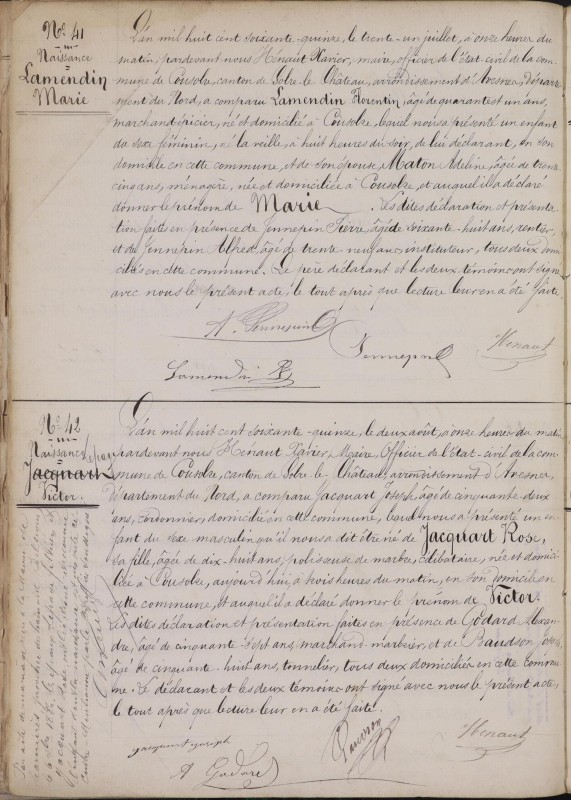 N.º 41
Naissance
Lamendin
Marie
L'an mil huit cent soixante-quinze, le trente-un juillet, à onze heures du
matin, pardevant nous Hénaut Xavier, maire, officier de l'état-civil de la com-
mune de Cousolre, canton de Solre-le-Château, arrondissement d'Avesnes, Départe-
ment du Nord, a comparu Lamendin Florentin, âgé de quarante et un ans,
marchand épicier, né et domicilié à Cousolre, lequel nous a présenté un enfant
du sexe féminin, né la veille, à huit heures du soir, de lui déclarant, en son
domicile en cette commune, et de son épouse, Maton Adeline, âgée de trente
cinq ans, ménagère, née et domiciliée à Cousolre, et auquel il a déclaré
donner le prénom de Marie. Les dites déclaration et présenta-
tion faites en présence de Jennepin Pierre, âgé de soixante-huit ans, rentier,
et de Jennepin Alfred, âgé de trente-neuf ans, instituteur, tous deux domi-
ciliés en cette commune. Le père déclarant et les deux témoins ont signé
avec nous le présent acte, le tout après que lecture leur en a été faite.
A. Jennepin
Jennepin
Henaut
Lamendin
N.º 42
Naissance
Jacquart
Victor.
L'an mil huit cent soixante-quinze, le deux août, à onze heures du matin
pardevant nous Hénaut Xavier, Maire, Officier de l'état-civil de la com-
mune de Cousolre, canton de Solre-le-Château, arrondissement d'Avesnes,
Département du Nord, a comparu Jacquart Joseph, âgé de cinquante-deux
ans, cordonnier, domicilié en cette commune, lequel nous a présenté un en-
fant du sexe masculin qu'il nous a dit être né de Jacquart Rose,
sa fille, âgée de dix-huit ans, polisseuse de marbre, célibataire, née et domici-
liée à Cousolre, aujourd'hui, à trois heures du matin, en son domicile en
cette commune, et auquel il a déclaré donner le prénom de Victor.
Les dites déclaration et présentation faites en présence de Godard Alexan-
dre, âgé de cinquante-sept ans, marchand-marbrier, et de Baudson Joseph,
âgé de cinquante-huit ans, tonnelier, tous deux domiciliés en cette commu-
ne. Le déclarant et les deux témoins ont signé avec nous le présent acte,
le tout après que lecture leur en a été faite.
jacquart joseph
Baudson
Henaut
A Godard